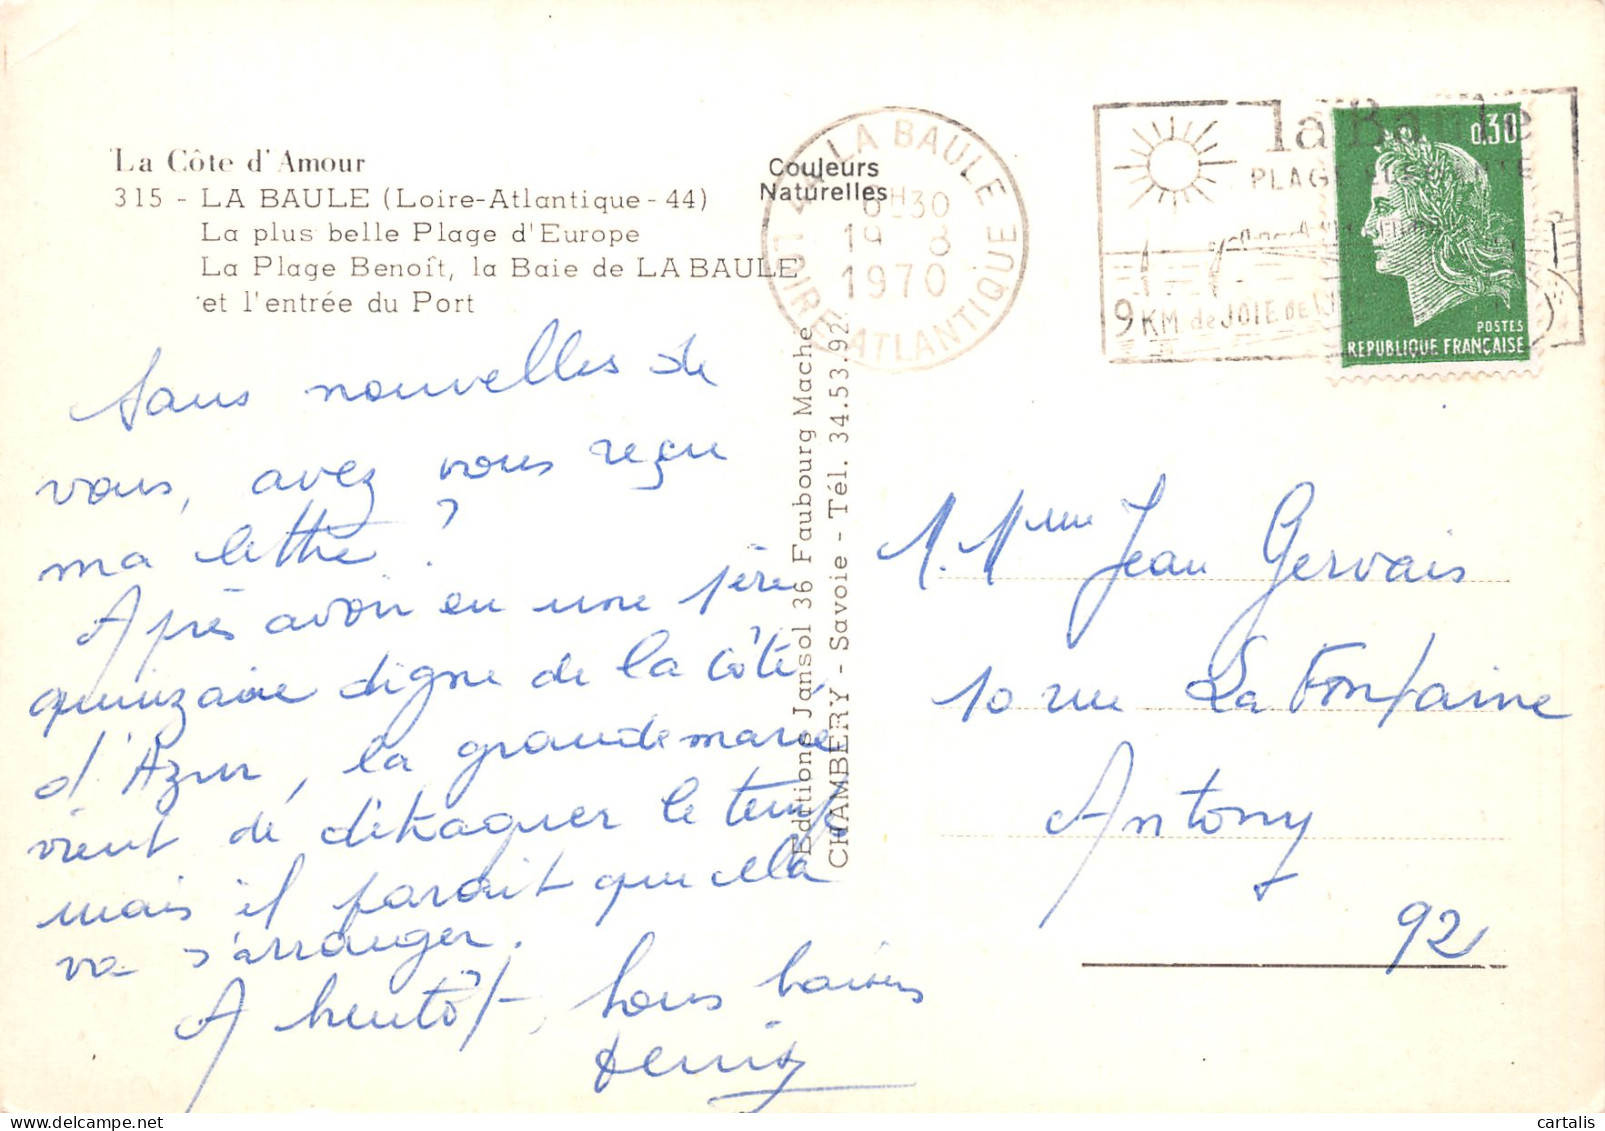 La Côte d'Amour
315 - LA BAULE (Loire-Atlantique - 44)
La plus belle Plage d'Europe
La Plage Benoît, la Baie de LA BAULE
et l'entrée du Port
Couleurs
Naturelles
44 LA BAULE
H30
19 8
1970
LOIRE ATLANTIQUE
la Baule
PLAGE
9 KM de JOIE de
0,30
POSTES
REPUBLIQUE FRANÇAISE
Editions Jansol 36 Faubourg Mache
CHAMBERY - Savoie - Tél. 34.53.92
Sans nouvelles de
vous, avez vous reçu
ma lettre ?
Après avoir eu une 1ère
quinzaine digne de la côte
d'Azur, la grande marée
vient de détraquer le temps
mais il parait que cela
va s'arranger.
A bientôt, bons baisers
M. Mme Jean Gervais
10 rue La Fontaine
Antony
92
cartalis